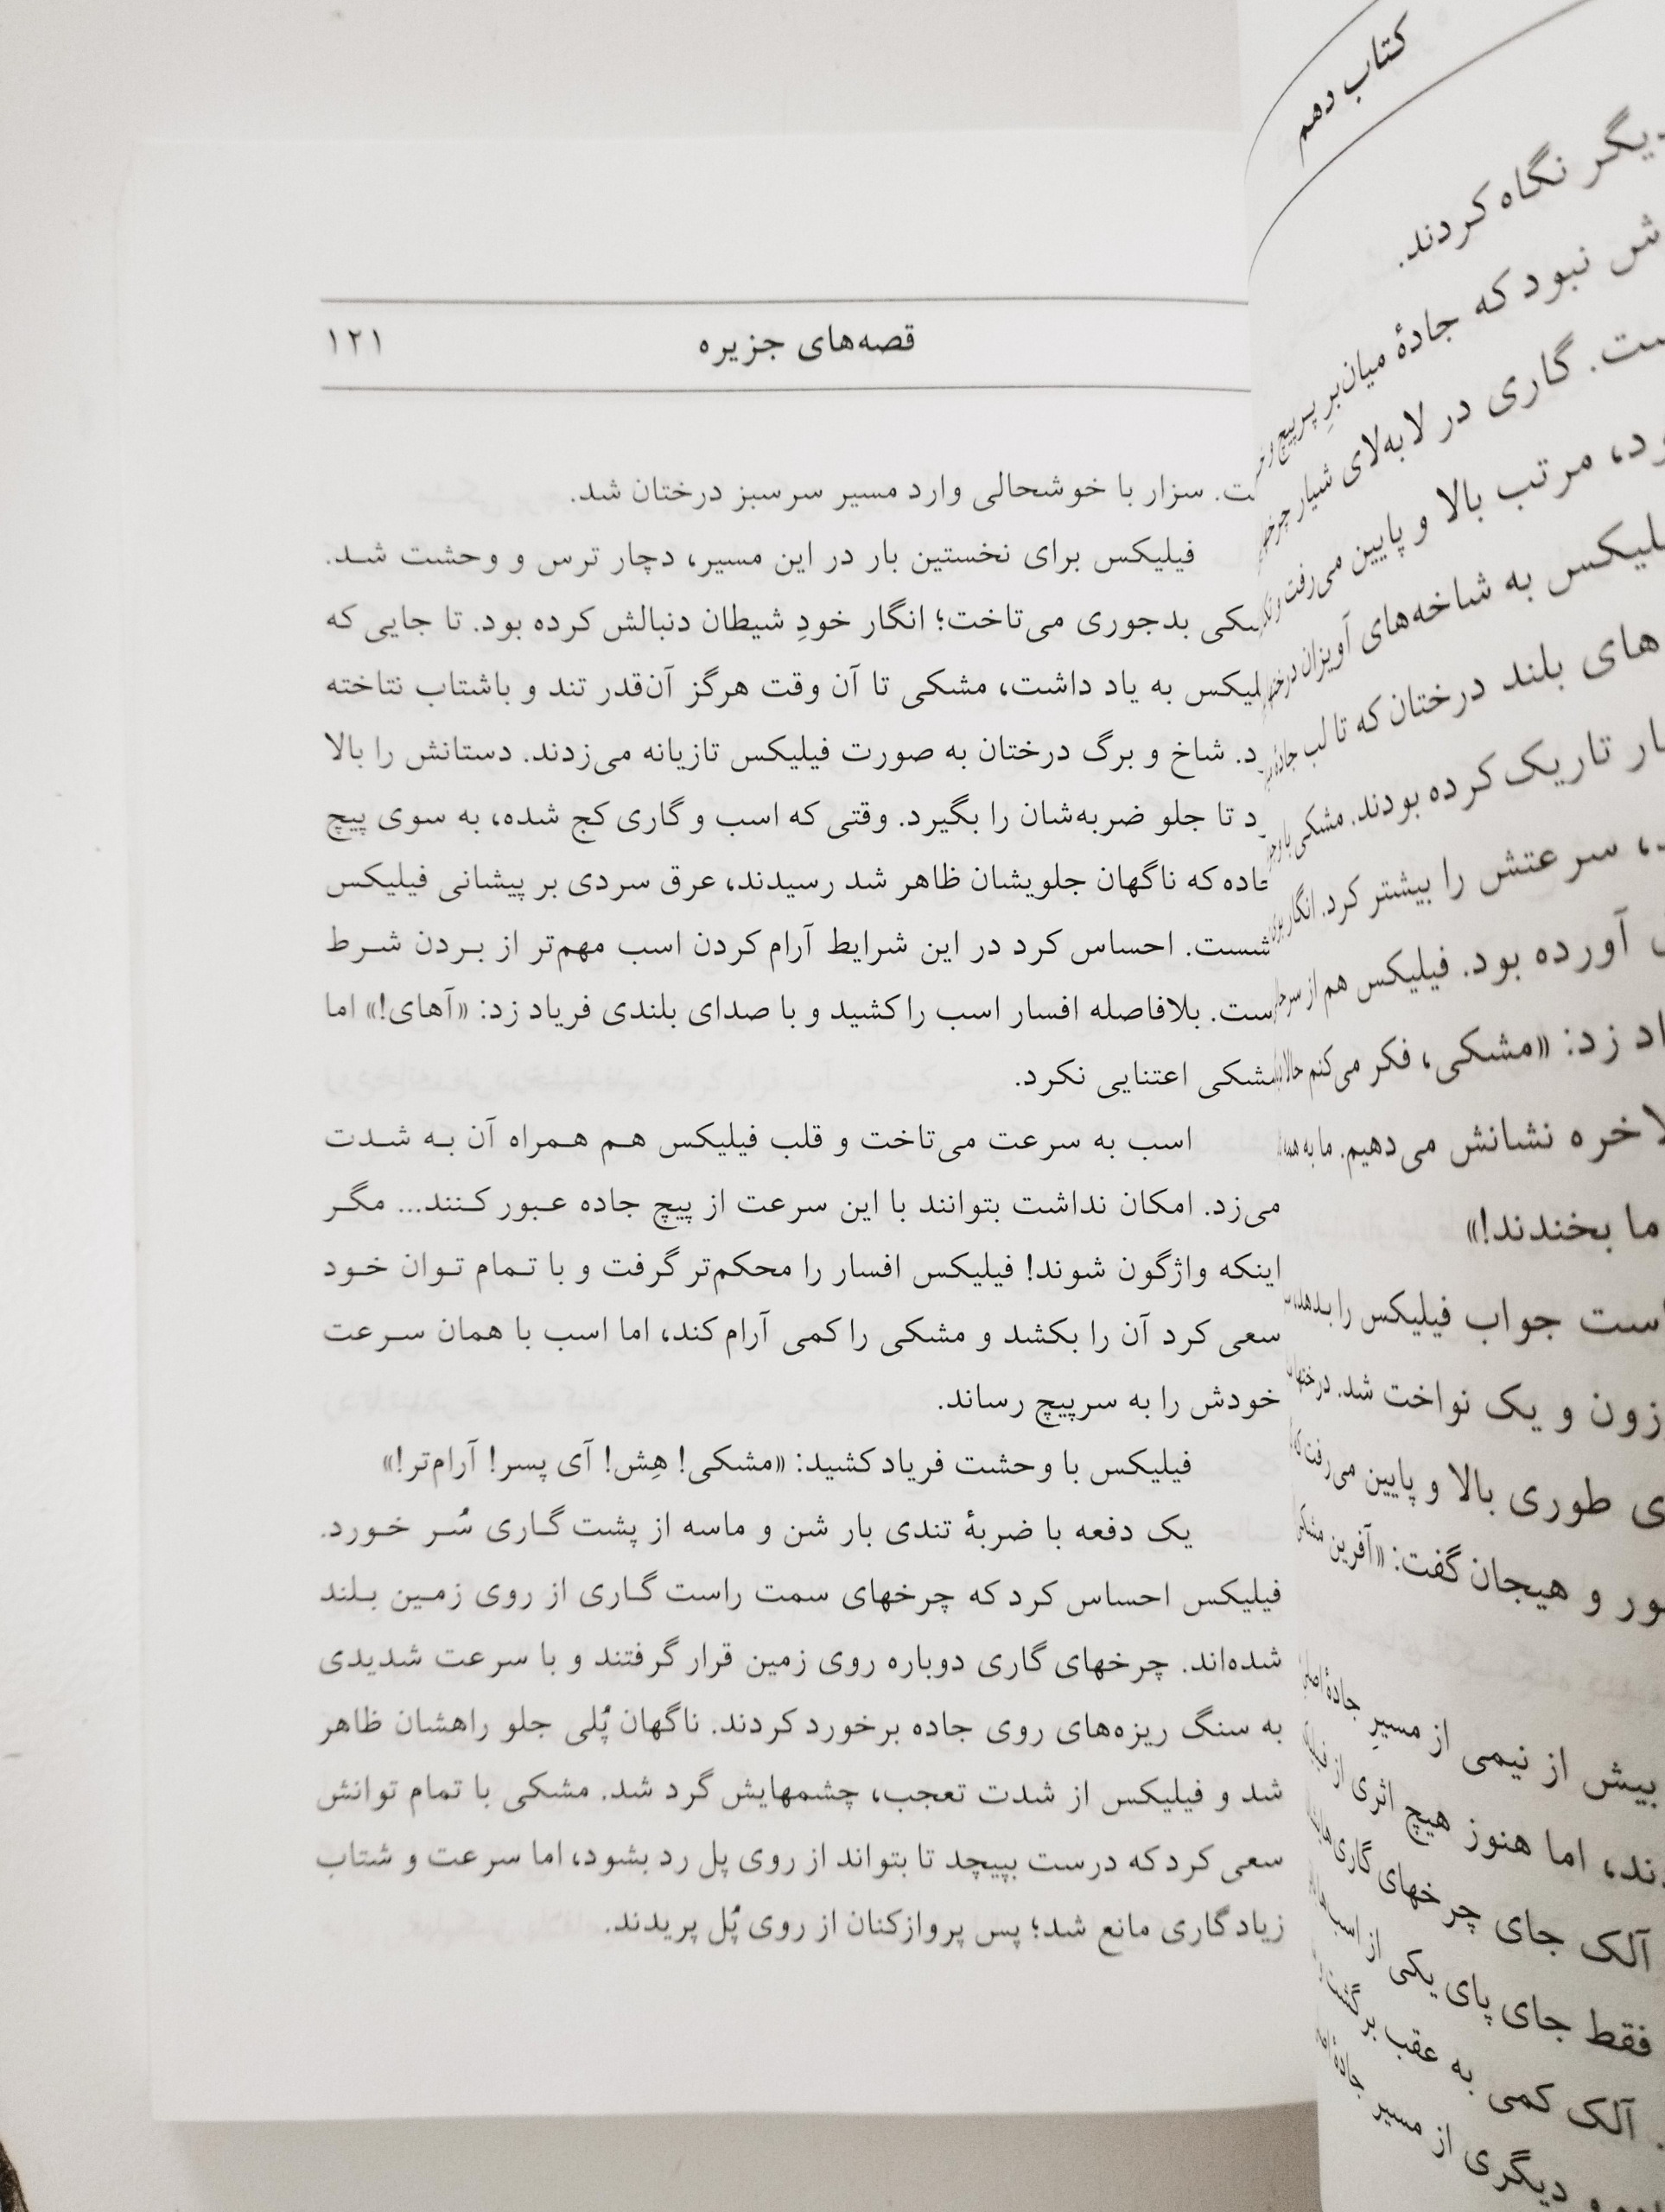 کتاب دهم
دیگر نگاه کردند.
نبود که جادهٔ میان‌برِ پرپیچ و
گاری در لابه‌لای شیار
مرتب بالا و پایین می‌رفت و
به شاخه‌های آویزان
بلند درختان که تا لب جادهٔ
تاریک کرده بودند. مشکی با
سرعتش را بیشتر کرد. انگار
آورده بود. فیلیکس هم از
زد: «مشکی، فکر می‌کنم حالا
نشانش می‌دهیم. ما به
ما بخندند!»
جواب فیلیکس را بدهد،
و یک نواخت شد.
طوری بالا و پایین می‌رفت که
و هیجان گفت: «آفرین مشکی
بیش از نیمی از مسیرِ جادهٔ
اما هنوز هیچ اثری از
آلک جای چرخهای گاری
فقط جای پای یکی از
آلک کمی به عقب برگشت
و دیگری از مسیر جادهٔ
قصه‌های جزیره ۱۲۱
سزار با خوشحالی وارد مسیر سرسبز درختان شد.
فیلیکس برای نخستین بار در این مسیر، دچار ترس و وحشت شد.
بدجوری می‌تاخت؛ انگار خودِ شیطان دنبالش کرده بود. تا جایی که
به یاد داشت، مشکی تا آن وقت هرگز آن‌قدر تند و باشتاب نتاخته
شاخ و برگ درختان به صورت فیلیکس تازیانه می‌زدند. دستانش را بالا
تا جلو ضربه‌شان را بگیرد. وقتی که اسب و گاری کج شده، به سوی پیچ
جاده که ناگهان جلویشان ظاهر شد رسیدند، عرق سردی بر پیشانی فیلیکس
احساس کرد در این شرایط آرام کردن اسب مهم‌تر از بردن شرط
است. بلافاصله افسار اسب را کشید و با صدای بلندی فریاد زد: «آهای!» اما
مشکی اعتنایی نکرد.
اسب به سرعت می‌تاخت و قلب فیلیکس هم همراه آن به شدت
می‌زد. امکان نداشت بتوانند با این سرعت از پیچ جاده عبور کنند... مگر
اینکه واژگون شوند! فیلیکس افسار را محکم‌تر گرفت و با تمام توان خود
سعی کرد آن را بکشد و مشکی را کمی آرام کند، اما اسب با همان سرعت
خودش را به سرپیچ رساند.
فیلیکس با وحشت فریاد کشید: «مشکی! هِش! آی پسر! آرام‌تر!»
یک دفعه با ضربهٔ تندی بار شن و ماسه از پشت گاری سُر خورد.
فیلیکس احساس کرد که چرخهای سمت راست گاری از روی زمین بلند
شده‌اند. چرخهای گاری دوباره روی زمین قرار گرفتند و با سرعت شدیدی
به سنگ ریزه‌های روی جاده برخورد کردند. ناگهان پُلی جلو راهشان ظاهر
شد و فیلیکس از شدت تعجب، چشمهایش گرد شد. مشکی با تمام توانش
سعی کرد که درست بپیچد تا بتواند از روی پل رد بشود، اما سرعت و شتاب
زیاد گاری مانع شد؛ پس پروازکنان از روی پُل پریدند.